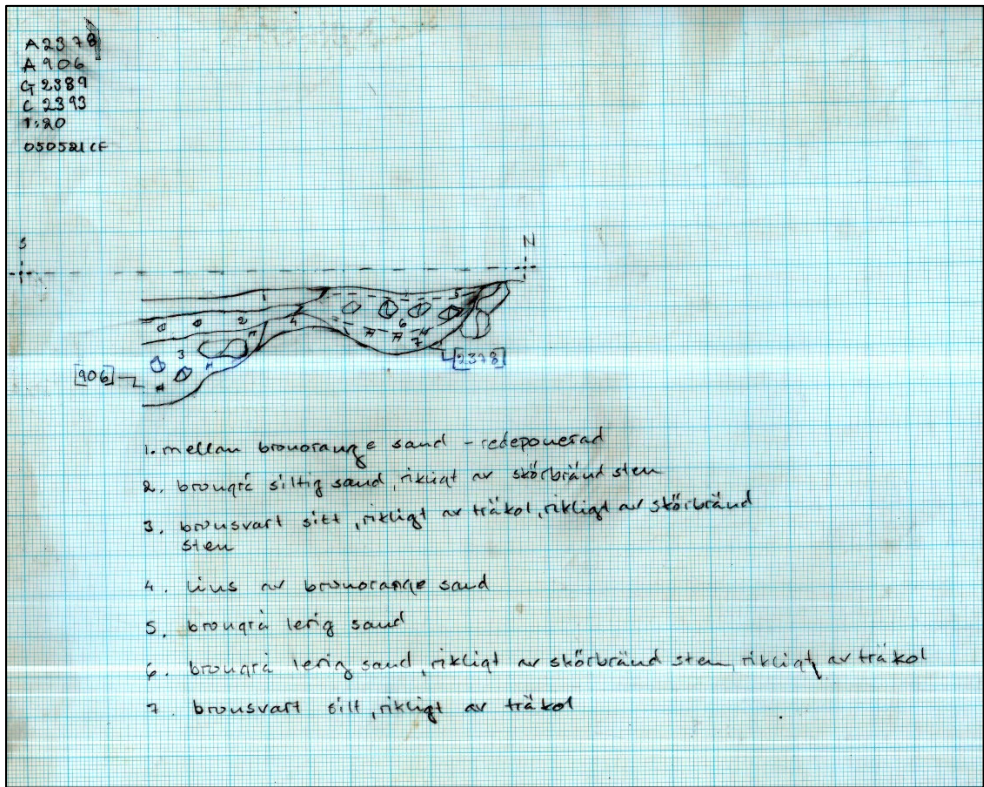 A2378
A906
G2389
C2393
1:20
050521 CF
S N
1
5
2 4
6
3
7
[906] [2378]
1. mellan brunorange sand - redeponerad
2. brungrå siltig sand, rikligt av skörbränd sten
3. brunsvart silt, rikligt av träkol, rikligt av skörbränd
sten
4. Lins av brunorange sand
5. brungrå lerig sand
6. brungrå lerig sand, rikligt av skörbränd sten, rikligt av träkol
7. brunsvart silt, rikligt av träkol